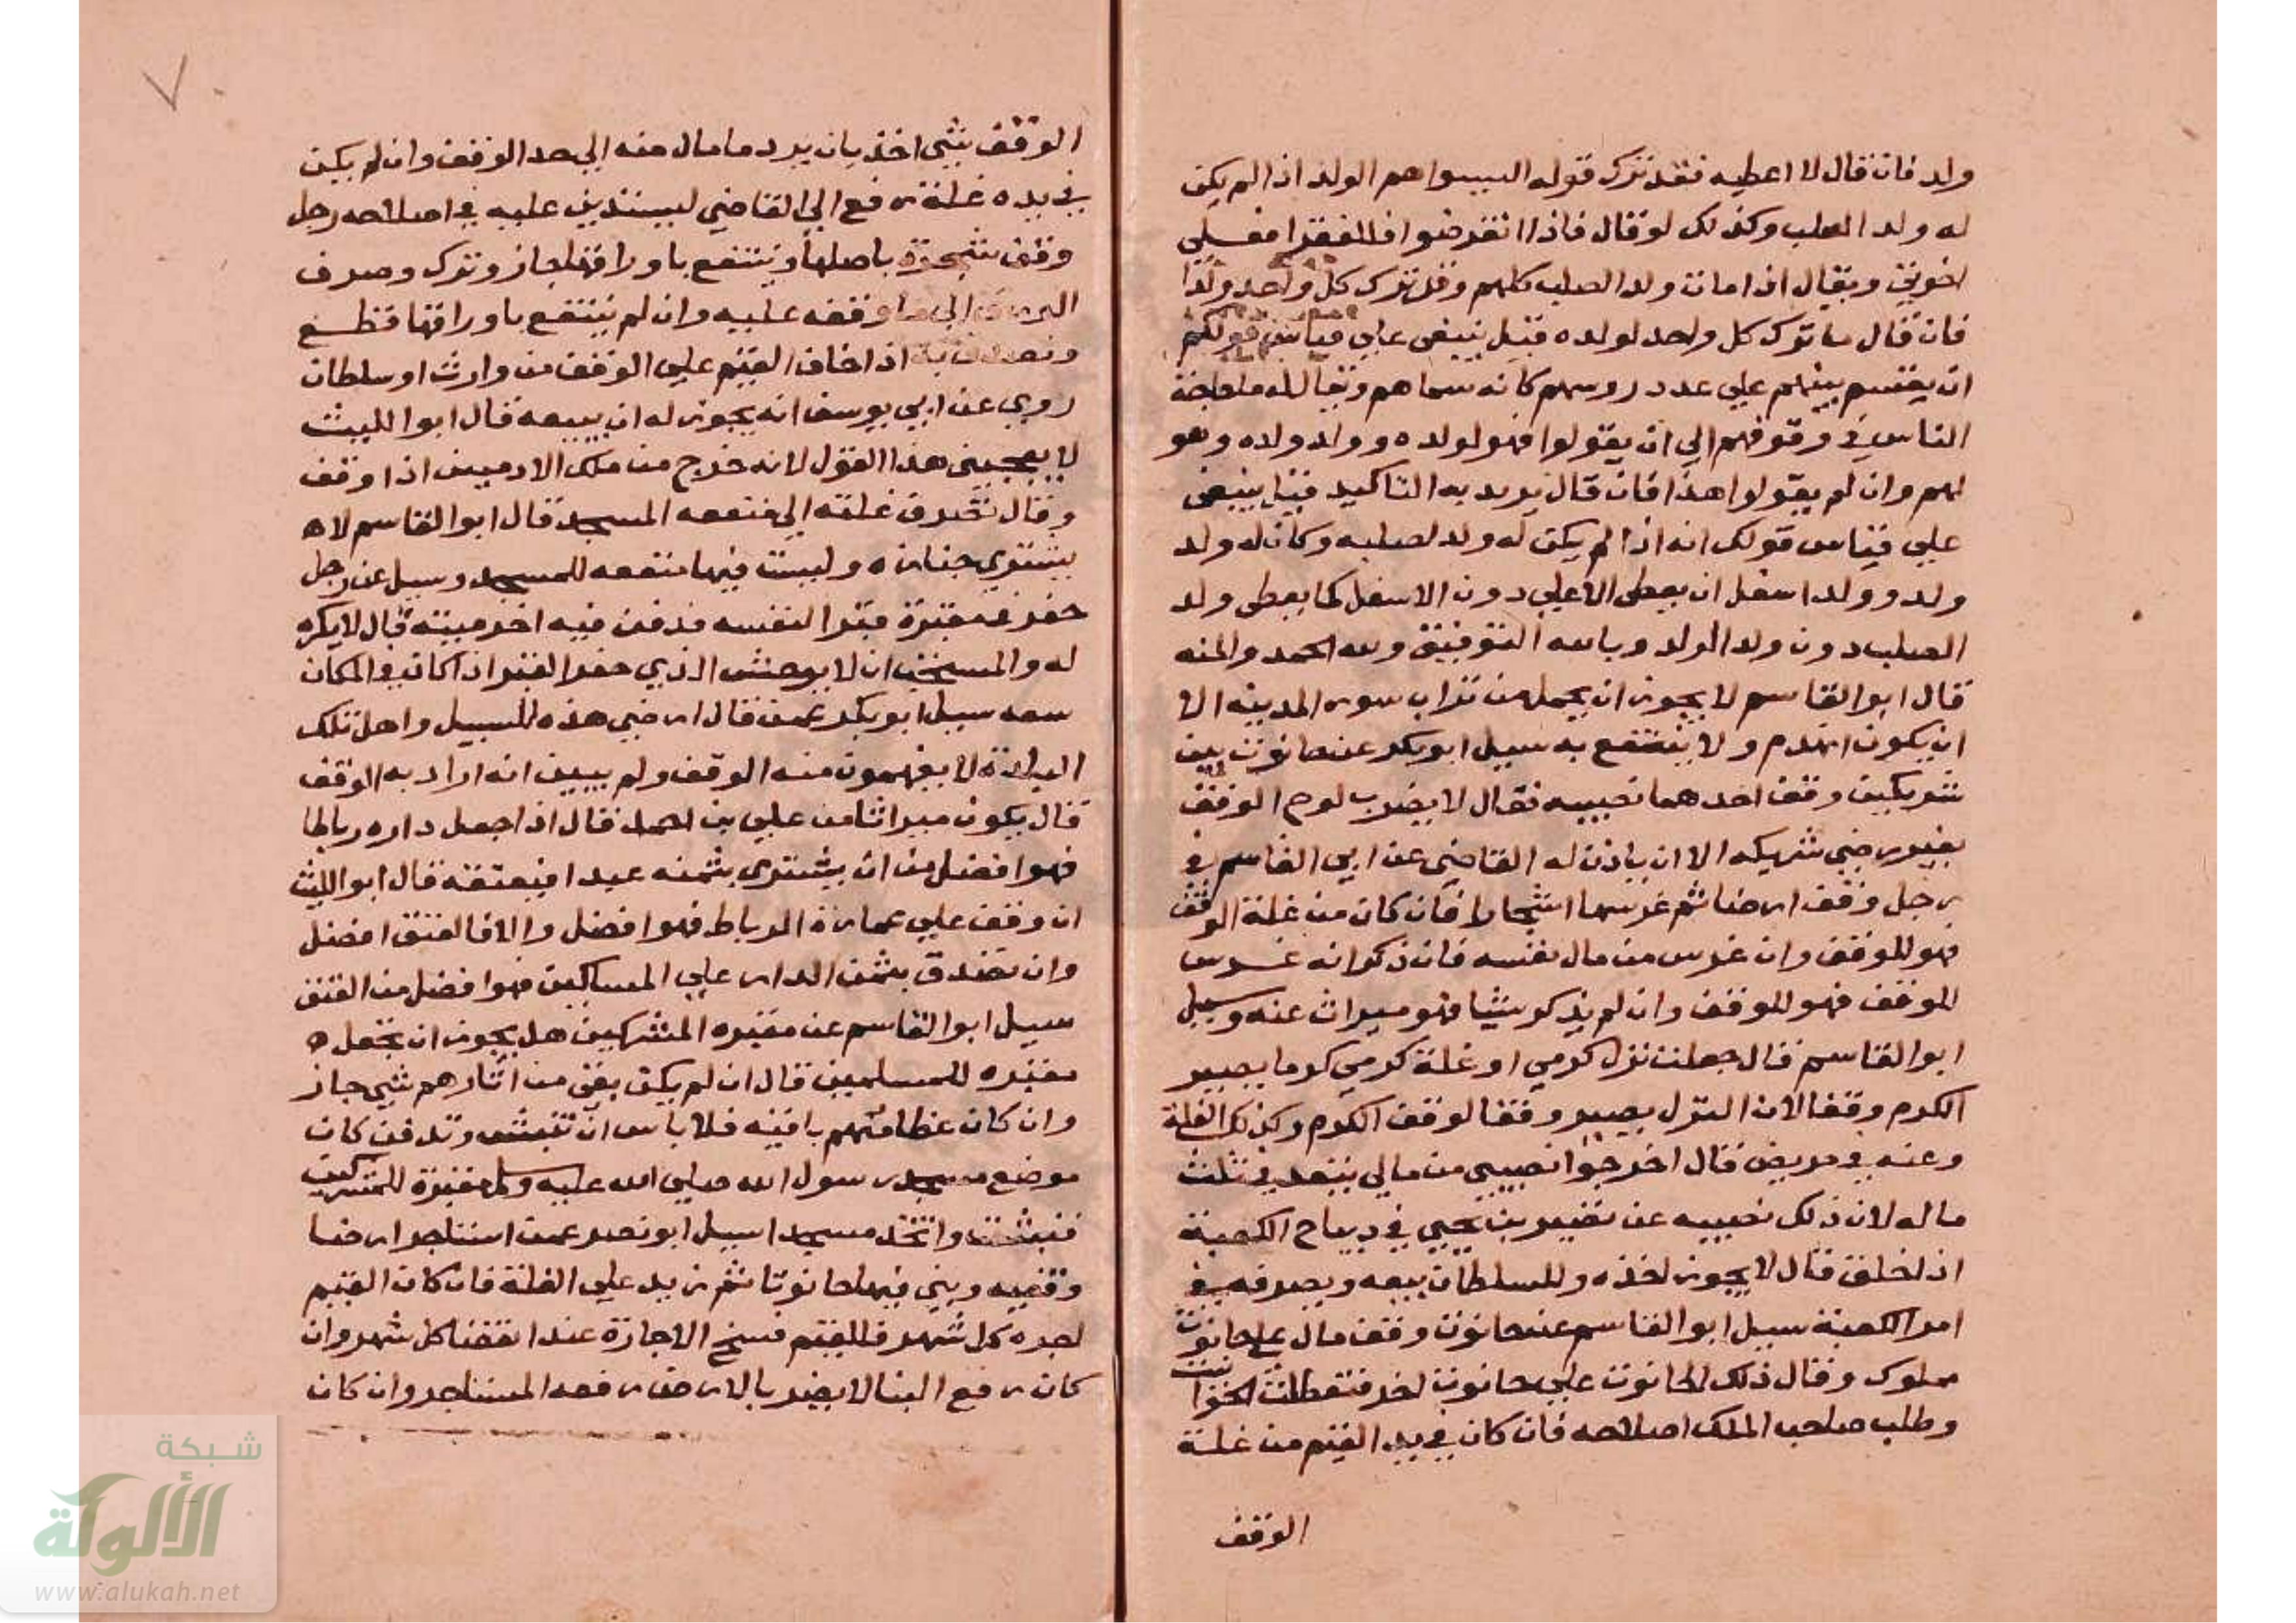 ولد فان قال لا اعطيه فقد ترك قوله اليسوا هم الولد اذا لم يكن
له ولد الصلب وكذلك لو قال فاذا انقرضوا فللفقرا فعلي
اخوتي ويقال اذا مات ولد الصلب كلهم وقد ترك كل واحد ولدا
فان قال ما ترك كل واحد لولده قيل ينبغي علي قياس قولكم
ان يقسم بينهم علي عدد روسهم كانه سماهم ويقال له ما حاجة
الناس في وقوفهم الي ان يقولوا فهو لولده وولد ولده وهو
لهم وان لم يقولوا هذا فان قال يريد به التاكيد قيل ينبغي
علي قياس قولك انه اذا لم يكن له ولد لصلبه وكان له ولد
ولد وولد اسفل ان يعطي الاعلي دون الاسفل كما يعطي ولد
الصلب دون ولد الولد وبالله التوفيق ولله الحمد والمنه
قال ابو القاسم لا يجوز ان يحمل من تراب سور المدينه الا
ان يكون انهدم ولا ينتفع به سيل ابو بكر عن حانوت بين
شريكين وقف احدهما نصيبه فقال لا يضرب لوح الوقف
بغير رضي شريكه الا ان ياذن له القاضي عن ابي القاسم في
رجل وقف ارضا ثم غرسها اشجارا فان كان من غلة الوقف
فهو للوقف وان غرس من مال نفسه فان ذكر انه غرس
للوقف فهو للوقف وان لم يذكر شيا فهو ميراث عنه وسيل
ابو القاسم قال جعلت نزل كرمي او غلة كرمي كرما يصير
الكرم وقفا لان النزل يصير وقفا لوقف الكرم وكذلك الغلة
وعنه في مريض قال اخرجوا نصيبي من مالي ينفد في ثلث
ماله لان ذلك نصيبه عن نصير بن يحيي في ديباج الكعبة
اذا خلق قال لا يجوز اخذه وللسلطان بيعه ويصرفه في
امر الكعبة سيل ابو القاسم عن حانوت وقف مال علي حانوت
مملوك وقال ذلك الحانوت علي حانوت اخر فتعطلت الحوانيت
وطلب صاحب الملك اصلاحه فان كان في يد القيم من غلة
الوقف
الوقف شي اخذ بان يرد ما مال منه الي حد الوقف وان لم يكن
في يده غلة رفع الي القاضي ليستدين عليه في اصلاحه رجل
وقف شجرة باصلها وينتفع باوراقها جاز وترك وصرف
الورق الي ما وقفه عليه وان لم ينتفع باوراقها قطع
وتصدق به اذا خاف القيم علي الوقف من وارث او سلطان
روي عن ابي يوسف انه يجوز له ان يبيعه قال ابوا الليث
لا يعجبني هذا القول لانه خرج من ملك الادميين اذا وقف
وقال تصرف غلته الي منفعه المسجد قال ابو القاسم لا
يشتري جنازه وليست فيها منفعه للمسجد وسيل عن رجل
حفر في مقبرة قبرا لنفسه فدفن فيه اخر ميته قال لا يكره
له والمستحب ان لا يوحش الذي حفر القبر اذا كان في المكان
سعه سيل ابو بكر عمن قال ارضي هذه للسبيل واهل تلك
البلدة لا يفهمون منه الوقف ولم يبين انه اراد به الوقف
قال يكون ميراثا من علي بن احمد قال اذا جعل داره رباطا
فهو افضل من ان يشتري بثمنه عبدا فيعتقه قال ابو الليث
ان وقف علي عمارة الرباط فهو افضل والا فالعتق افضل
وان تصدق بثمن الدار علي المساكين فهو افضل من العتق
سيل ابو القاسم عن مقبره المشركين هل يجوز ان تجعل
مقبره للمسلمين قال ان لم يكن بقي من اثارهم شي جاز
وان كان عظامهم باقيه فلا باس ان تنبش وتدفن كان
موضع مسجد رسول الله صلي الله عليه وسلم مقبرة للمشركين
فنبشت واتخذ مسجدا سيل ابو نصر عمن استاجر ارضا
وقفيه وبني فيها حانوتا ثم زيد علي الغلة فان كان القيم
اجره كل شهر فللقيم فسخ الاجارة عند انقضا كل شهر وان
كان رفع البنا لا يضر بالارض رفعه المستاجر وان كان
شبكة
الألوكة
www.alukah.net